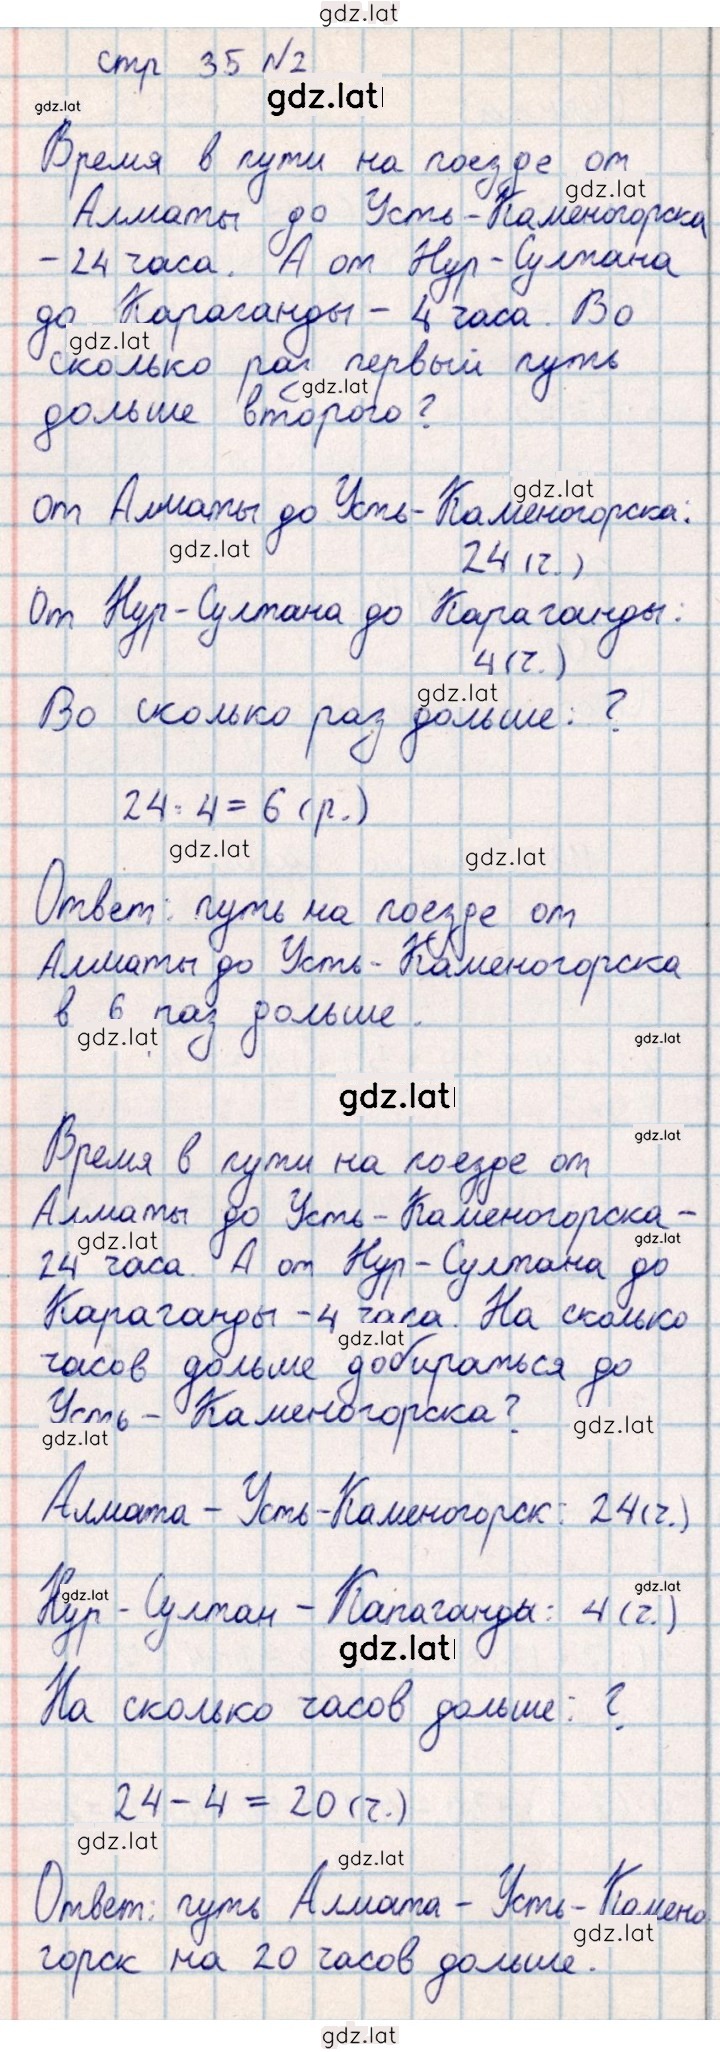 gdz.lat
стр 35 №2
gdz.lat
gdz.lat
Время в пути на поезде от
gdz.lat
Алматы до Усть-Каменогорска
- 24 часа. А от Нур-Султана
до Караганды - 4 часа. Во
gdz.lat
сколько раз первый путь
gdz.lat
дольше второго?
gdz.lat
от Алматы до Усть-Каменогорска:
gdz.lat
24 (ч.)
От Нур-Султана до Караганды:
4 (ч.)
gdz.lat
Во сколько раз дольше: ?
24 : 4 = 6 (р.)
gdz.lat
gdz.lat
Ответ: путь на поезде от
Алматы до Усть-Каменогорска
в 6 раз дольше.
gdz.lat
gdz.lat
gdz.lat
gdz.lat
Время в пути на поезде от
Алматы до Усть-Каменогорска -
gdz.lat
gdz.lat
24 часа. А от Нур-Султана до
Караганды - 4 часа. На сколько
gdz.lat
часов дольше добираться до
Усть - Каменогорска?
gdz.lat
gdz.lat
Алмата - Усть-Каменогорск: 24 (ч.)
gdz.lat
gdz.lat
Нур - Султан - Караганды: 4 (ч.)
gdz.lat
На сколько часов дольше: ?
24 - 4 = 20 (ч.)
gdz.lat
gdz.lat
Ответ: путь Алмата - Усть-Камено
gdz.lat
горск на 20 часов дольше.
gdz.lat